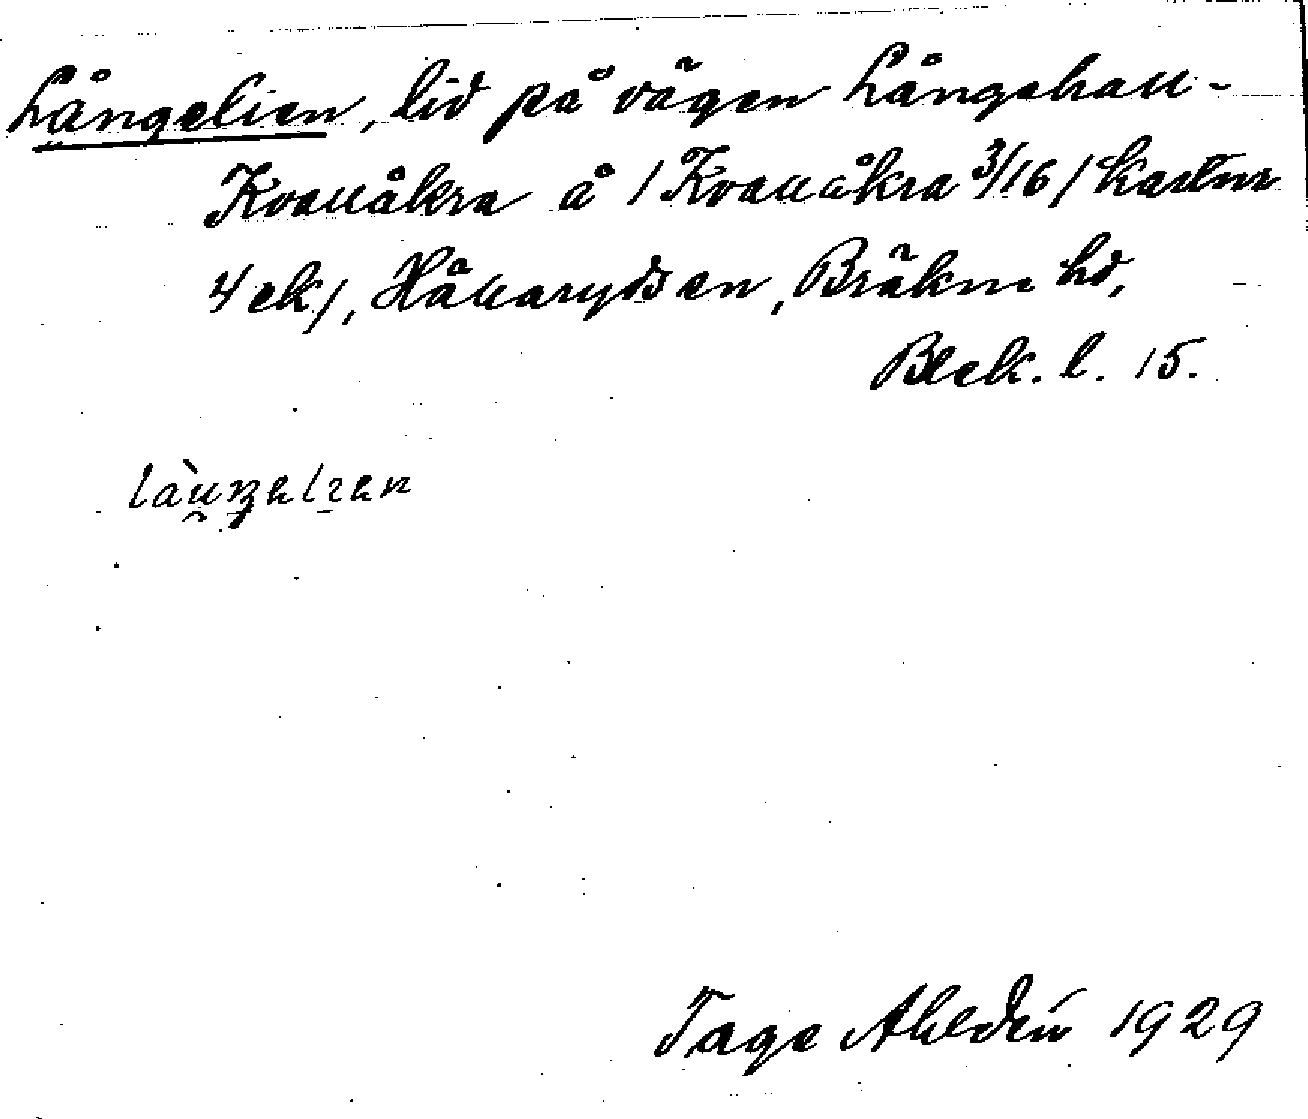 Långelien, lid på vägen Långehall-
Kvallåkra å /Kvallåkra 3/16/ kartnr
4 ek/, Hällarydsen, Bräkne hd,
Blek. l. 15.
Tage Ahldén 1929